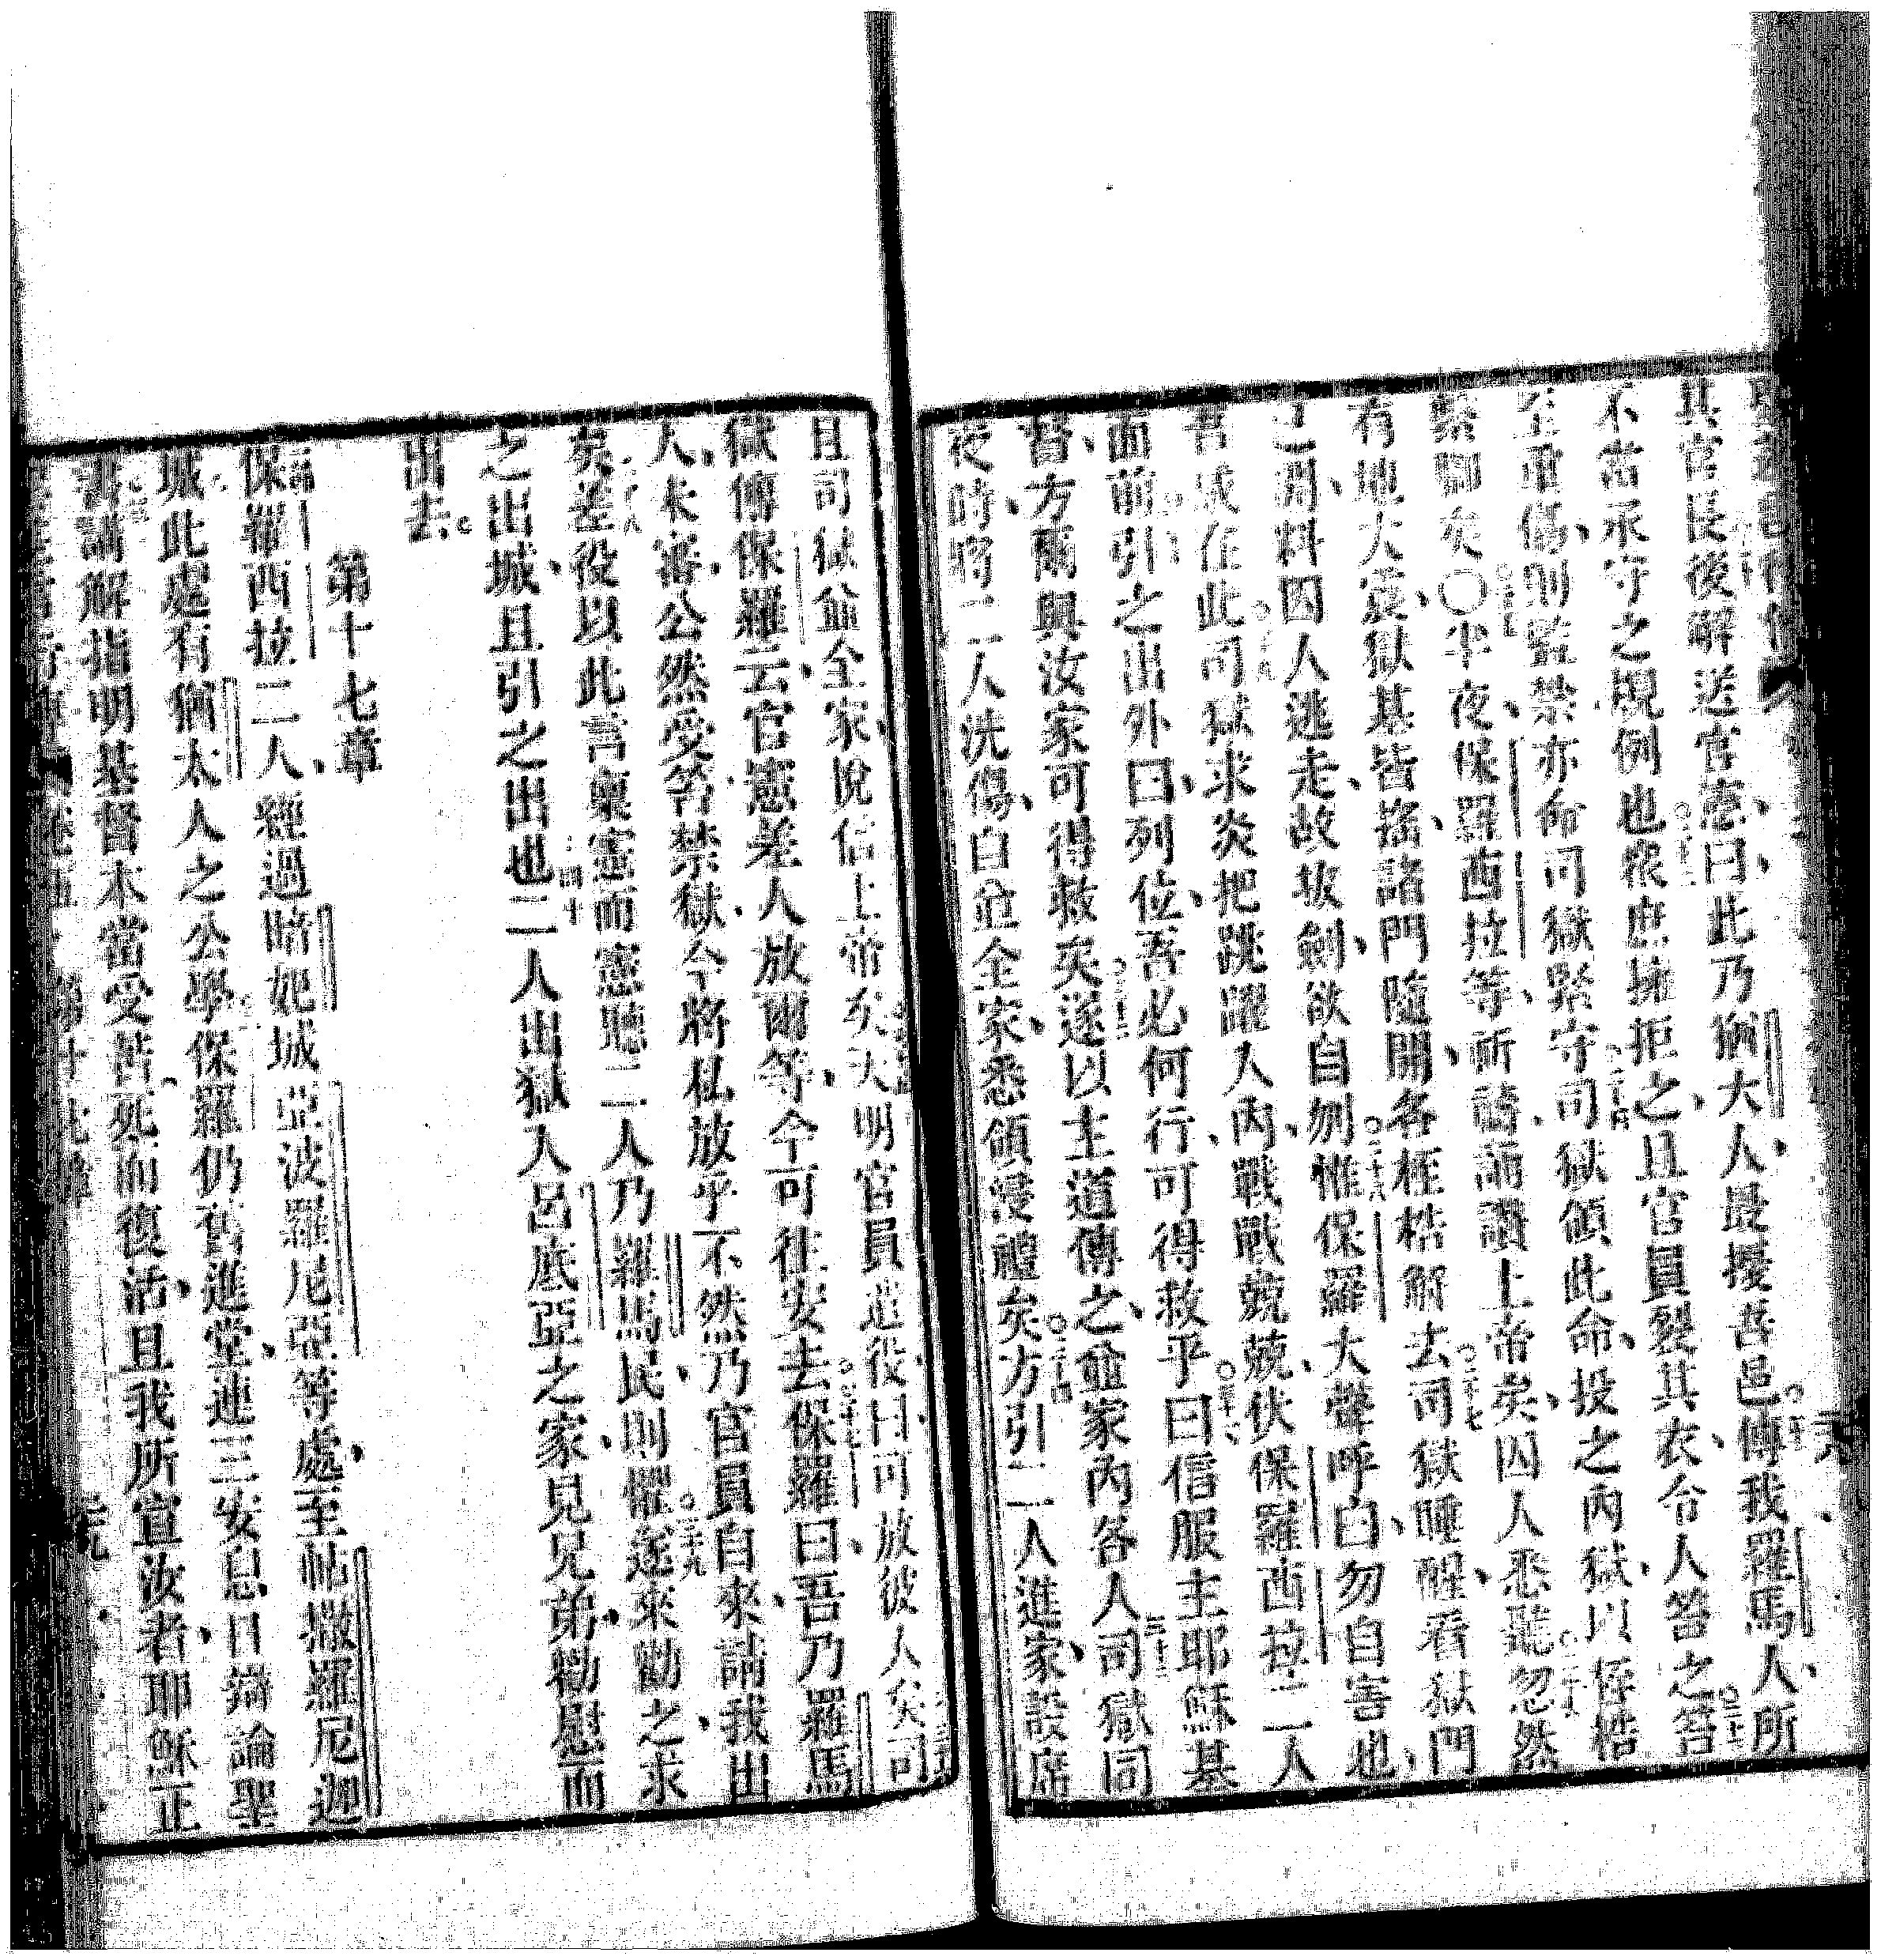 其官長後解送官憲曰此乃猶太人最擾吾邑傳我羅馬人所
不當承守之規例也衆庶擁拒之且官員裂其衣令人笞之笞
至重傷則監禁亦命司獄緊守司獄領此命投之內獄以桎梏
緊脚矣〇半夜保羅西拉等祈禱誦讚上帝矣囚人悉聽忽然
有地大震獄基皆搖諸門隨開各桎梏解去司獄睡醒看獄門
已開料囚人逃走故拔劍欲自刎惟保羅大聲呼曰勿自害也
吾衆在此司獄求炎把跳躍入內戰戰兢兢伏保羅西拉二人
面前引之出外曰列位吾必何行可得救乎曰信服主耶穌基
督方爾與汝家可得救矣遂以主道傳之並家內各人司獄同
夜時將二人洗傷自並全家悉領浸禮矣方引二人進家設席
且司獄並全家悅信上帝矣天明官員差役曰可放彼人矣司
獄傳保羅云官憲差人放爾等今可往安去保羅曰吾乃羅馬
人未審公然受笞禁獄今將私放乎不然乃官員自來請我出
矣差役以此言稟憲而憲聽二人乃羅馬民則懼遂來勸之求
之出城且引之出也二人出獄入呂底亞之家見兄弟勸慰而
出去
第十七章
保羅西拉二人經過暗妃城亞波羅尼亞等處至帖撒羅尼迦
城此處有猶太人之公學保羅仍舊進堂連三安息日辯論聖
書講解指明基督本當受苦死而復活且我所宣汝者耶穌正